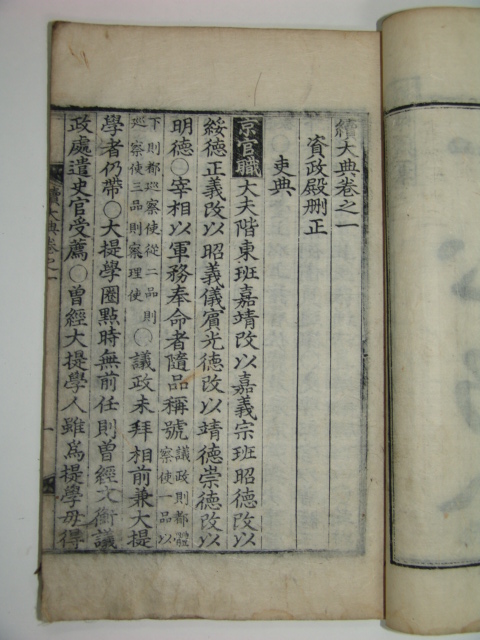 續大典卷之一
資政殿删正
吏典
京官職 大夫階東班嘉靖改以嘉義宗班昭德改以
綏德正義改以昭義儀賓光德改以靖德崇德改以
明德○宰相以軍務奉命者隨品稱號議政則都體察使一品以
下則都巡察使從二品則巡察使三品則察理使○議政未拜相前兼大提
學者仍帶○大提學圈點時無前任則曾經文衡議
政處遣史官受薦○曾經大提學人雖爲提學毋得
續大典卷之一
一